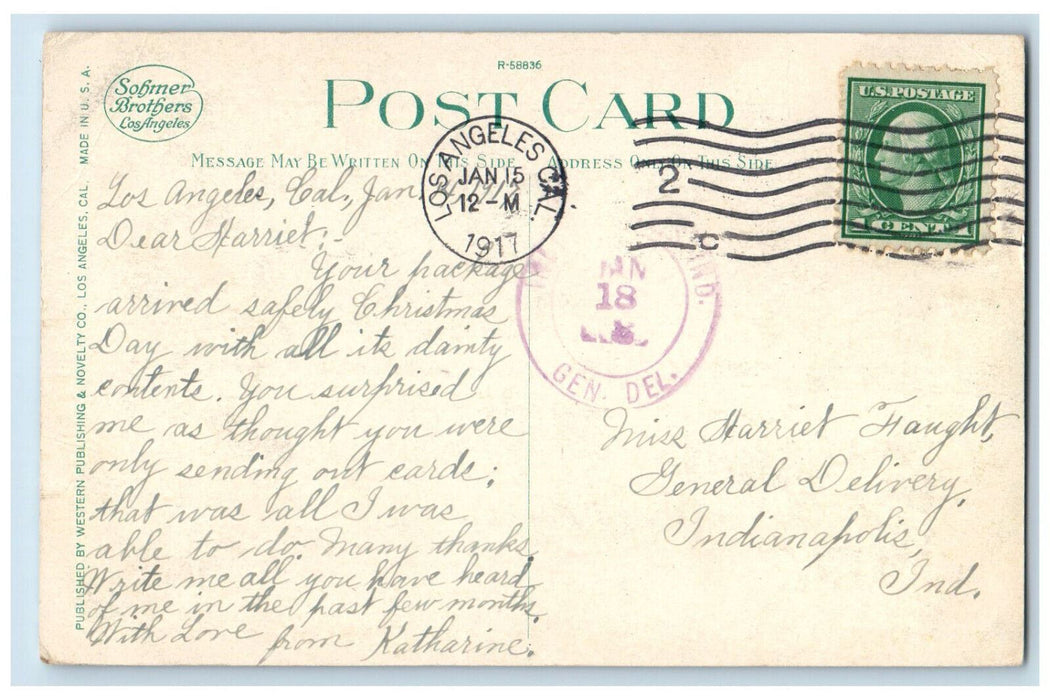 R-58836
Sohmer
Brothers
Los Angeles
POST CARD
MESSAGE MAY BE WRITTEN ON THIS SIDE
ADDRESS ONLY ON THIS SIDE
PUBLISHED BY WESTERN PUBLISHING & NOVELTY CO., LOS ANGELES, CAL. MADE IN U. S. A.
U.S. POSTAGE
1 CENT 1
LOS ANGELES CAL.
JAN 15
12-M
1917
2
C
IND.
JAN
18
GEN. DEL.
Los Angeles, Cal., Jan.
Dear Harriet:-
Your package
arrived safely Christmas
Day with all its dainty
contents. You surprised
me as thought you were
only sending out cards;
that was all I was
able to do. Many thanks.
Write me all you have heard
of me in the past few months.
With Love from Katharine.
Miss Harriet Faught,
General Delivery,
Indianapolis,
Ind.